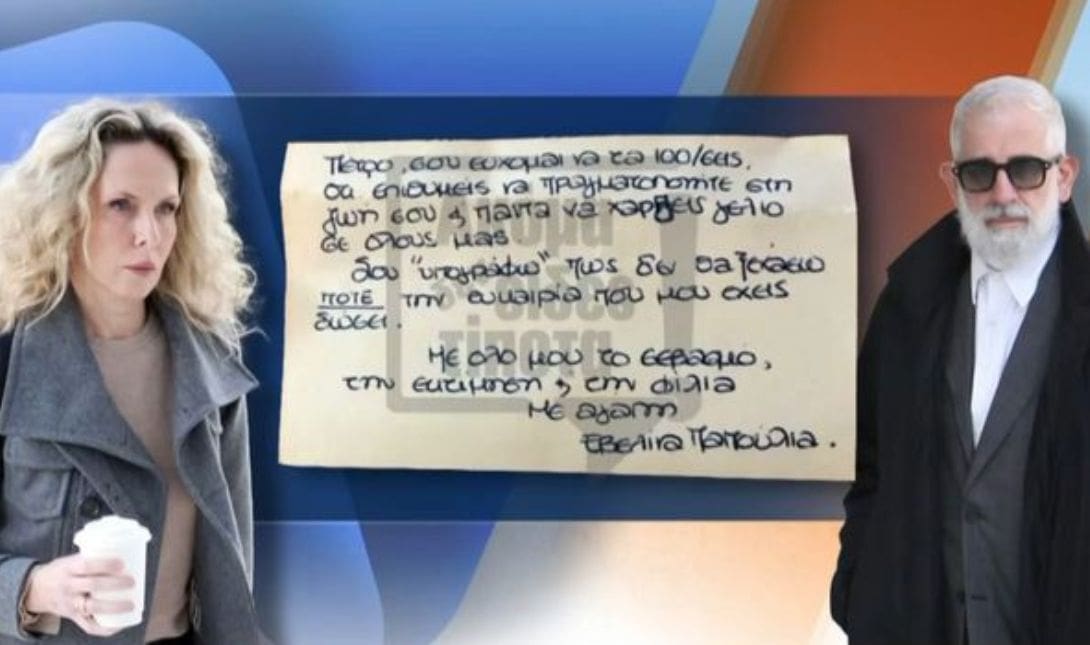 Πέτρο, σου εύχομαι να τα 100/εις,
ότι επιθυμείς να πραγματοποιήτε στη
ζωή σου & πάντα να χαρίζεις γέλιο
σε όλους μας
Σου "υπογράφω" πως δεν θα ξεχάσω
ΠΟΤΕ την ευκαιρία που μου έχεις
δώσει.
Με όλο μου το σεβασμό,
την εκτίμηση & τη φιλία
Με αγάπη
Εβελίνα Παπούλια.
Άκομα
δεν είδες
τίποτα